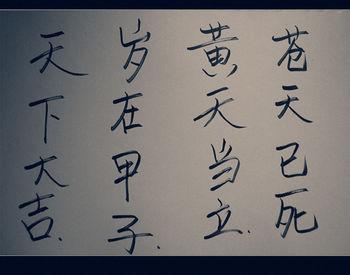 苍天已死
黄天当立.
岁在甲子.
天下大吉.